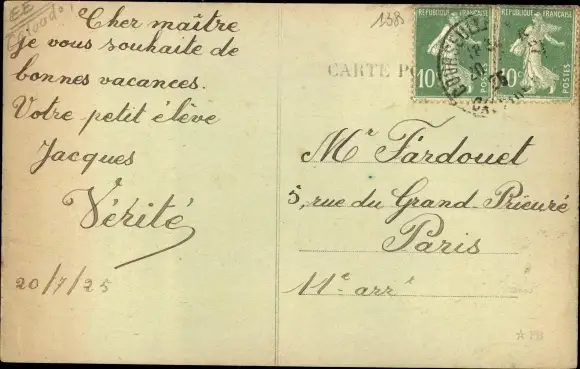 Cher maître
je vous souhaite de
bonnes vacances.
Votre petit élève
Jacques
Vérité
20/7/25
EE
138
CARTE PO
REPUBLIQUE FRANÇAISE
10c
POSTES
REPUBLIQUE FRANÇAISE
10c
POSTES
COURSEULLES
20
25
Mr Fardouet
5, rue du Grand-Prieuré
Paris
11e arrt